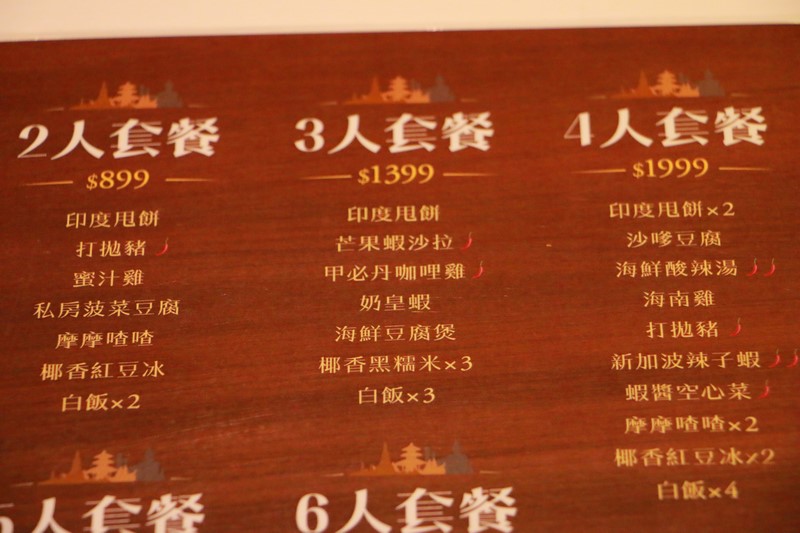 2人套餐
$899
印度甩餅
打拋豬
蜜汁雞
私房菠菜豆腐
摩摩喳喳
椰香紅豆冰
白飯×2
3人套餐
$1399
印度甩餅
芒果蝦沙拉
甲必丹咖哩雞
奶皇蝦
海鮮豆腐煲
椰香黑糯米×3
白飯×3
4人套餐
$1999
印度甩餅×2
沙嗲豆腐
海鮮酸辣湯
海南雞
打拋豬
新加波辣子蝦
蝦醬空心菜
摩摩喳喳×2
椰香紅豆冰×2
白飯×4
5人套餐
6人套餐